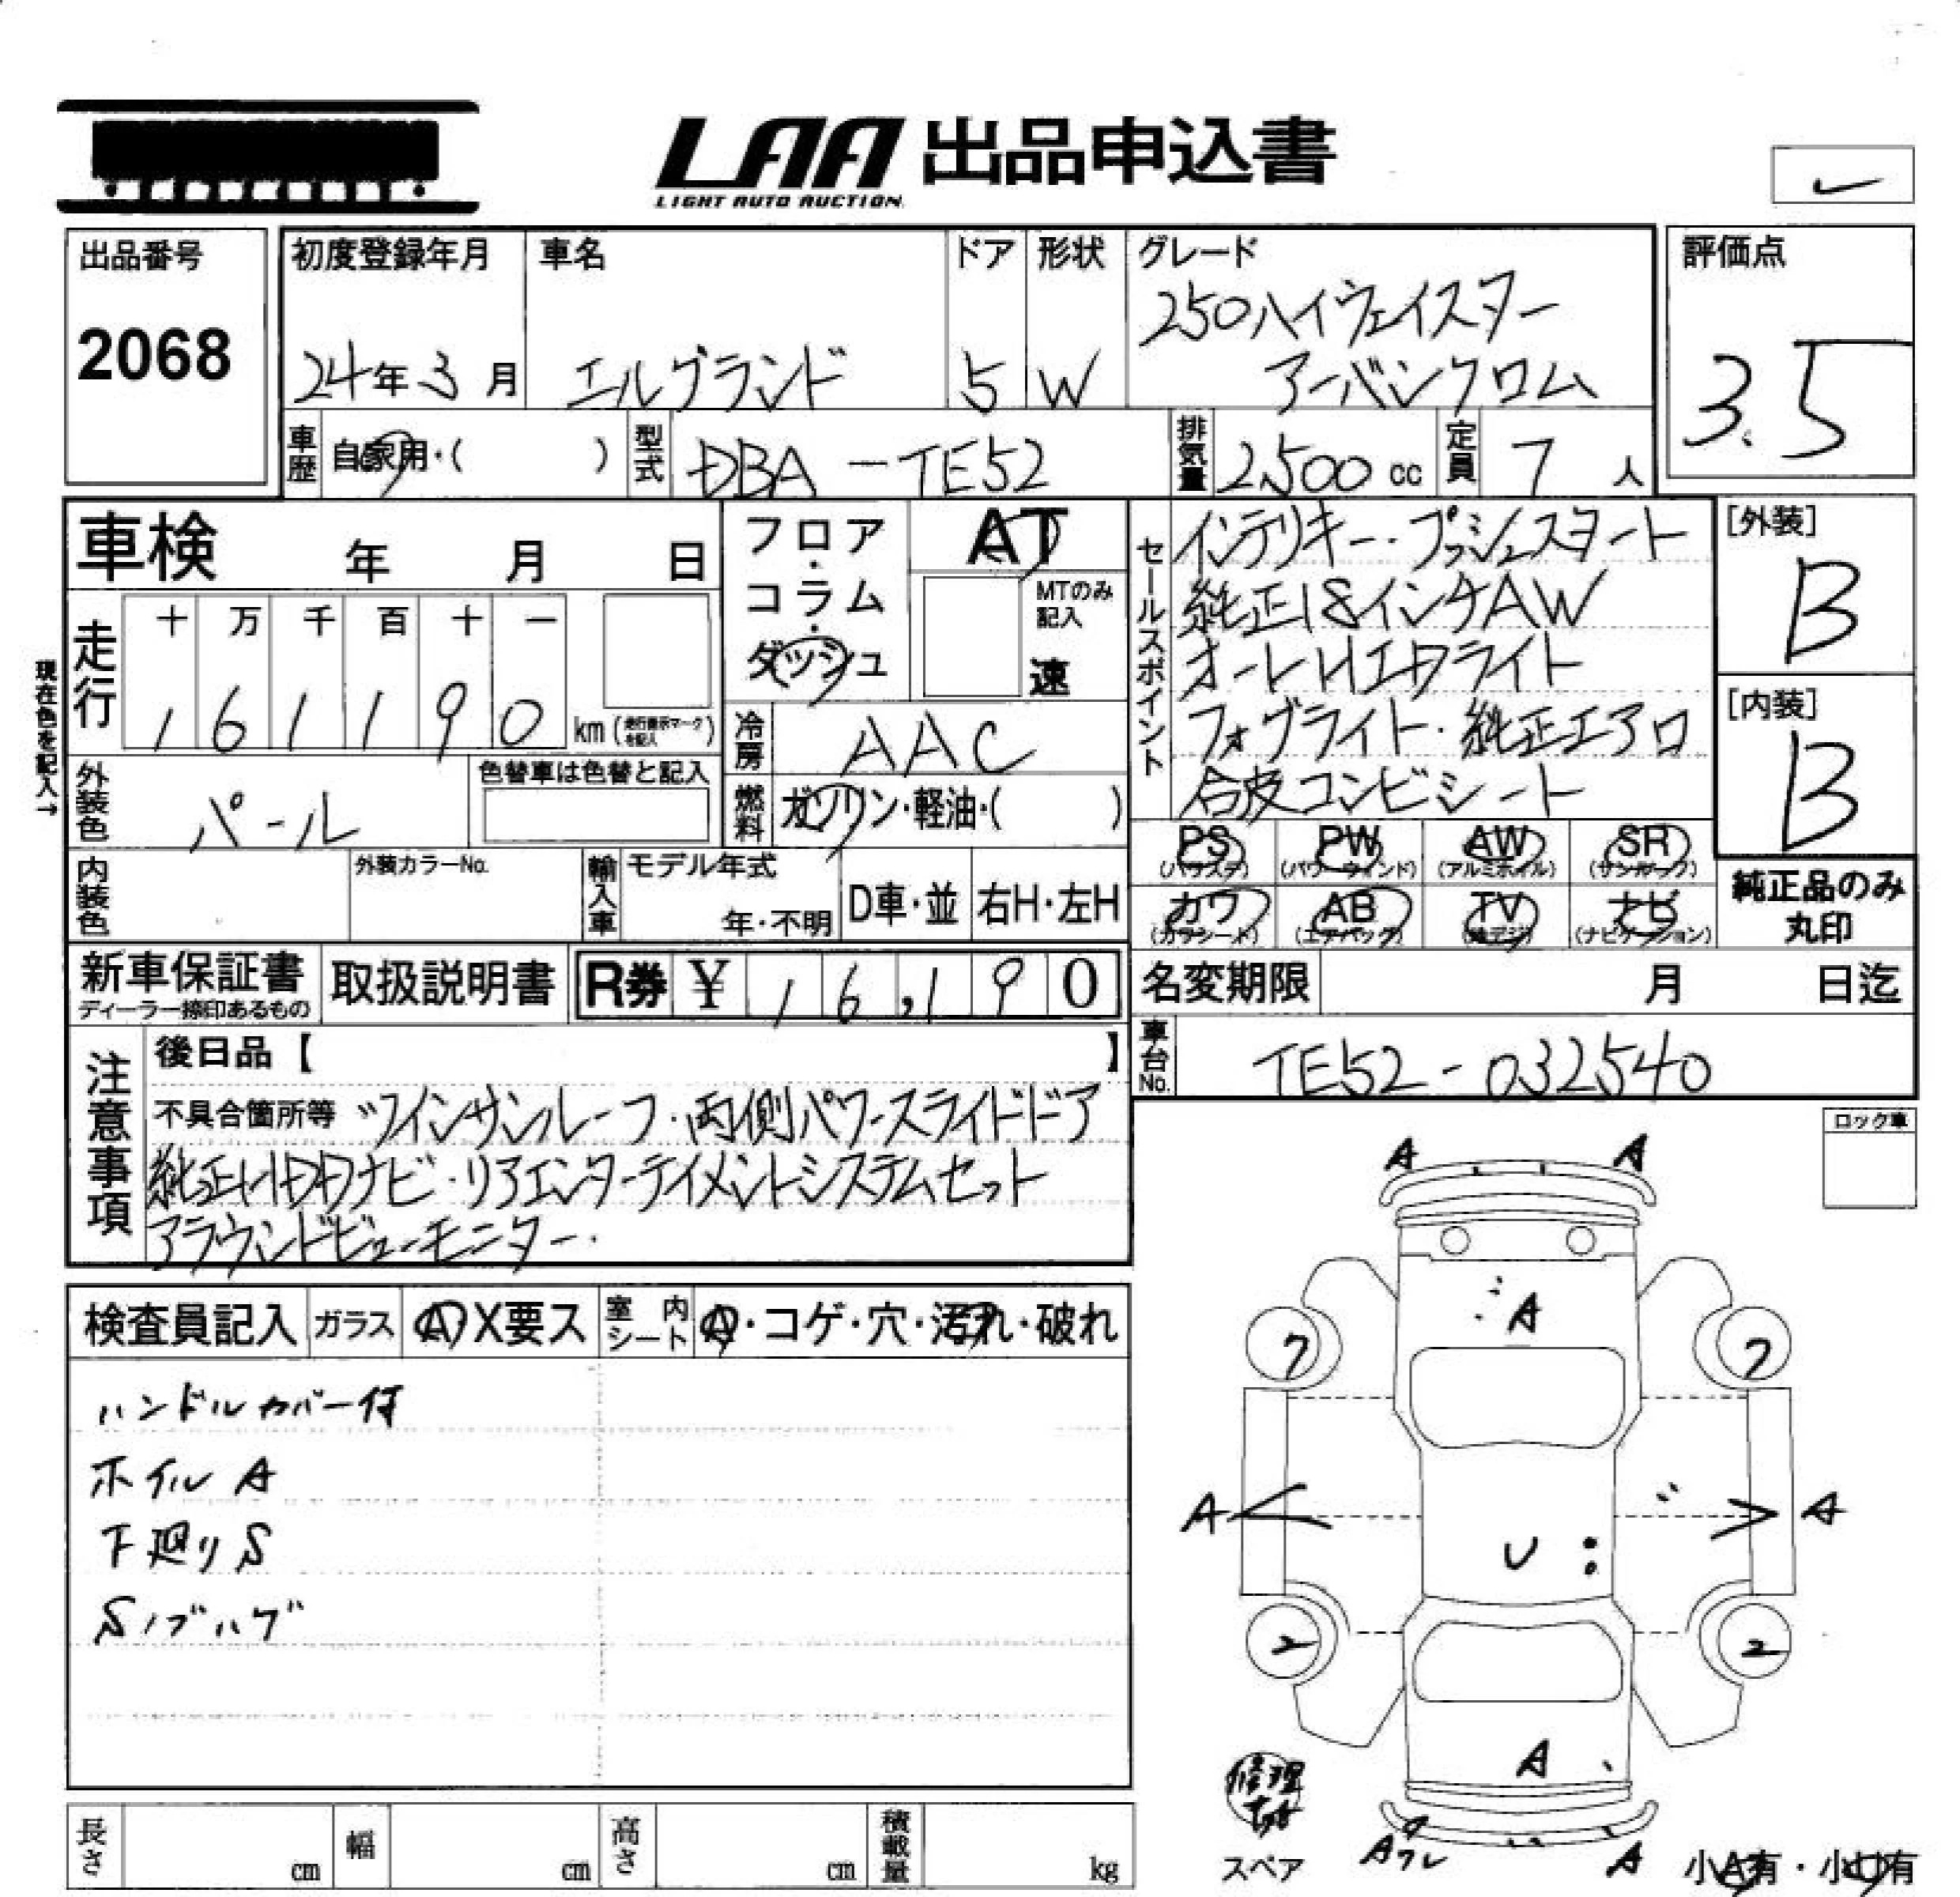 LAA 出品申込書
LIGHT AUTO AUCTION
出品番号
2068
初度登録年月
24年3月
車名
エルグランド
ドア
5
形状
W
グレード
250ハイウェイスター
アーバンクロム
評価点
3.5
車歴
自家用・( )
型式
DBA-TE52
排気量
2,500 cc
定員
7 人
車検 年 月 日
フロア・コラム・ダッシュ
AT
MTのみ記入
速
セールスポイント
インテリキー・プッシュスタート
純正18インチAW
オートHIDライト
フォグライト・純正エアロ
合皮コンビシート
[外装]
B
[内装]
B
現在色を記入→
走行
十 万 千 百 十 一
1 6 1 1 9 0 km (走行表示マークを記入)
冷房
AAC
外装色
パール
色替車は色替と記入
燃料
ガソリン・軽油・( )
PS (パワステ)
PW (パワーウィンド)
AW (アルミホイル)
SR (サンルーフ)
カワ (カワシート)
AB (エアバッグ)
TV (地デジ)
ナビ (ナビゲーション)
純正品のみ
丸印
内装色
外装カラーNo.
輸入車
モデル年式
年・不明
D車・並
右H・左H
新車保証書
ディーラー捺印あるもの
取扱説明書
R券 ¥ 16,190
名変期限 月 日迄
車台No.
TE52-032540
注意事項
後日品【 】
不具合箇所等 ツインサンルーフ・両側パワースライドドア
純正HDDナビ・リアエンターテイメントシステムセット
アラウンドビューモニター.
ロック車
検査員記入
ガラス
A X要ス
室内シート
A・コゲ・穴・汚れ・破れ
ハンドルカバー付
ホイルA
下廻りS
Sノブハゲ
A A
A
7 7
A A
U
2 2
A
修理
スペア
A A
小A有・小U有
長さ cm
幅 cm
高さ cm
積載量 kg